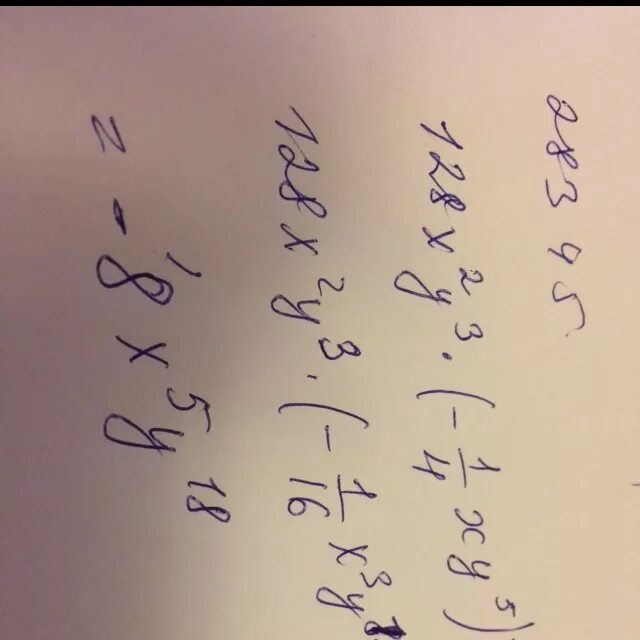 28345
128x²y³·(-1/4xy⁵)
128x²y³·(-1/16x³y
= -8x⁵y¹⁸